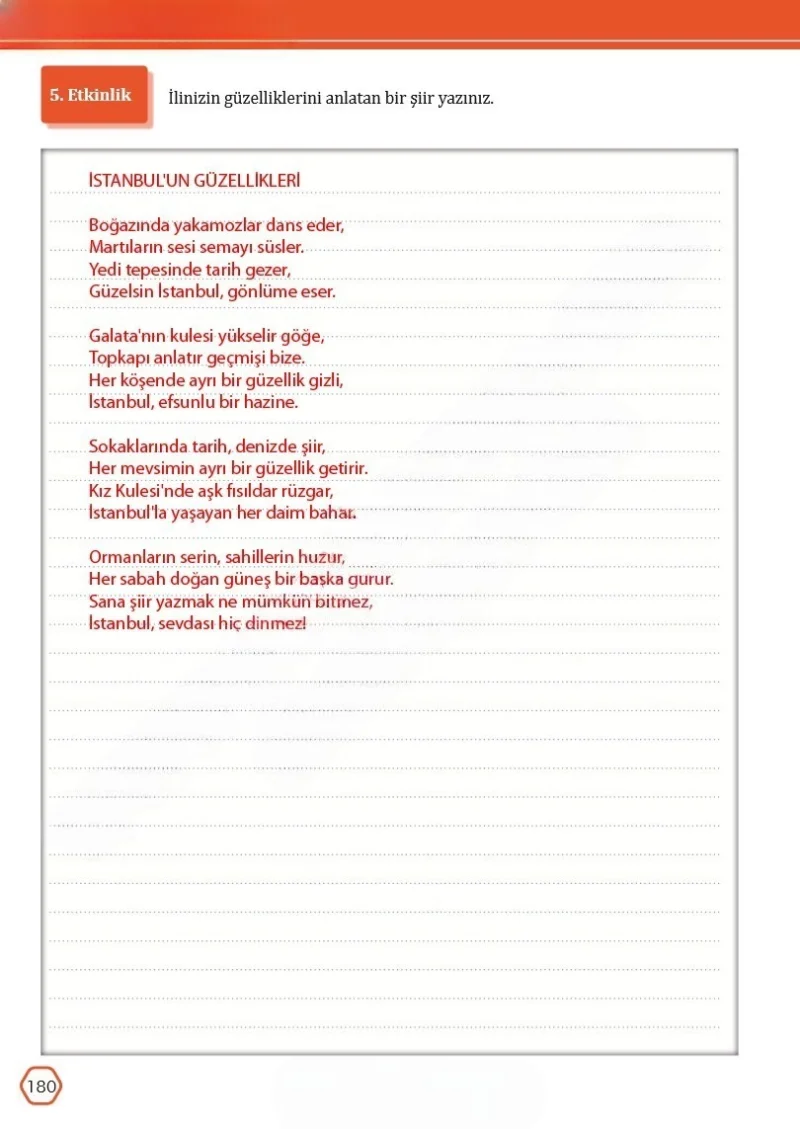 5. Etkinlik
İlinizin güzelliklerini anlatan bir şiir yazınız.
İSTANBUL'UN GÜZELLİKLERİ
Boğazında yakamozlar dans eder,
Martıların sesi semayı süsler.
Yedi tepesinde tarih gezer,
Güzelsin İstanbul, gönlüme eser.
Galata'nın kulesi yükselir göğe,
Topkapı anlatır geçmişi bize.
Her köşende ayrı bir güzellik gizli,
İstanbul, efsunlu bir hazine.
Sokaklarında tarih, denizde şiir,
Her mevsimin ayrı bir güzellik getirir.
Kız Kulesi'nde aşk fısıldar rüzgar,
İstanbul'la yaşayan her daim bahar.
Ormanların serin, sahillerin huzur,
Her sabah doğan güneş bir başka gurur.
Sana şiir yazmak ne mümkün bitmez,
İstanbul, sevdası hiç dinmez!
180